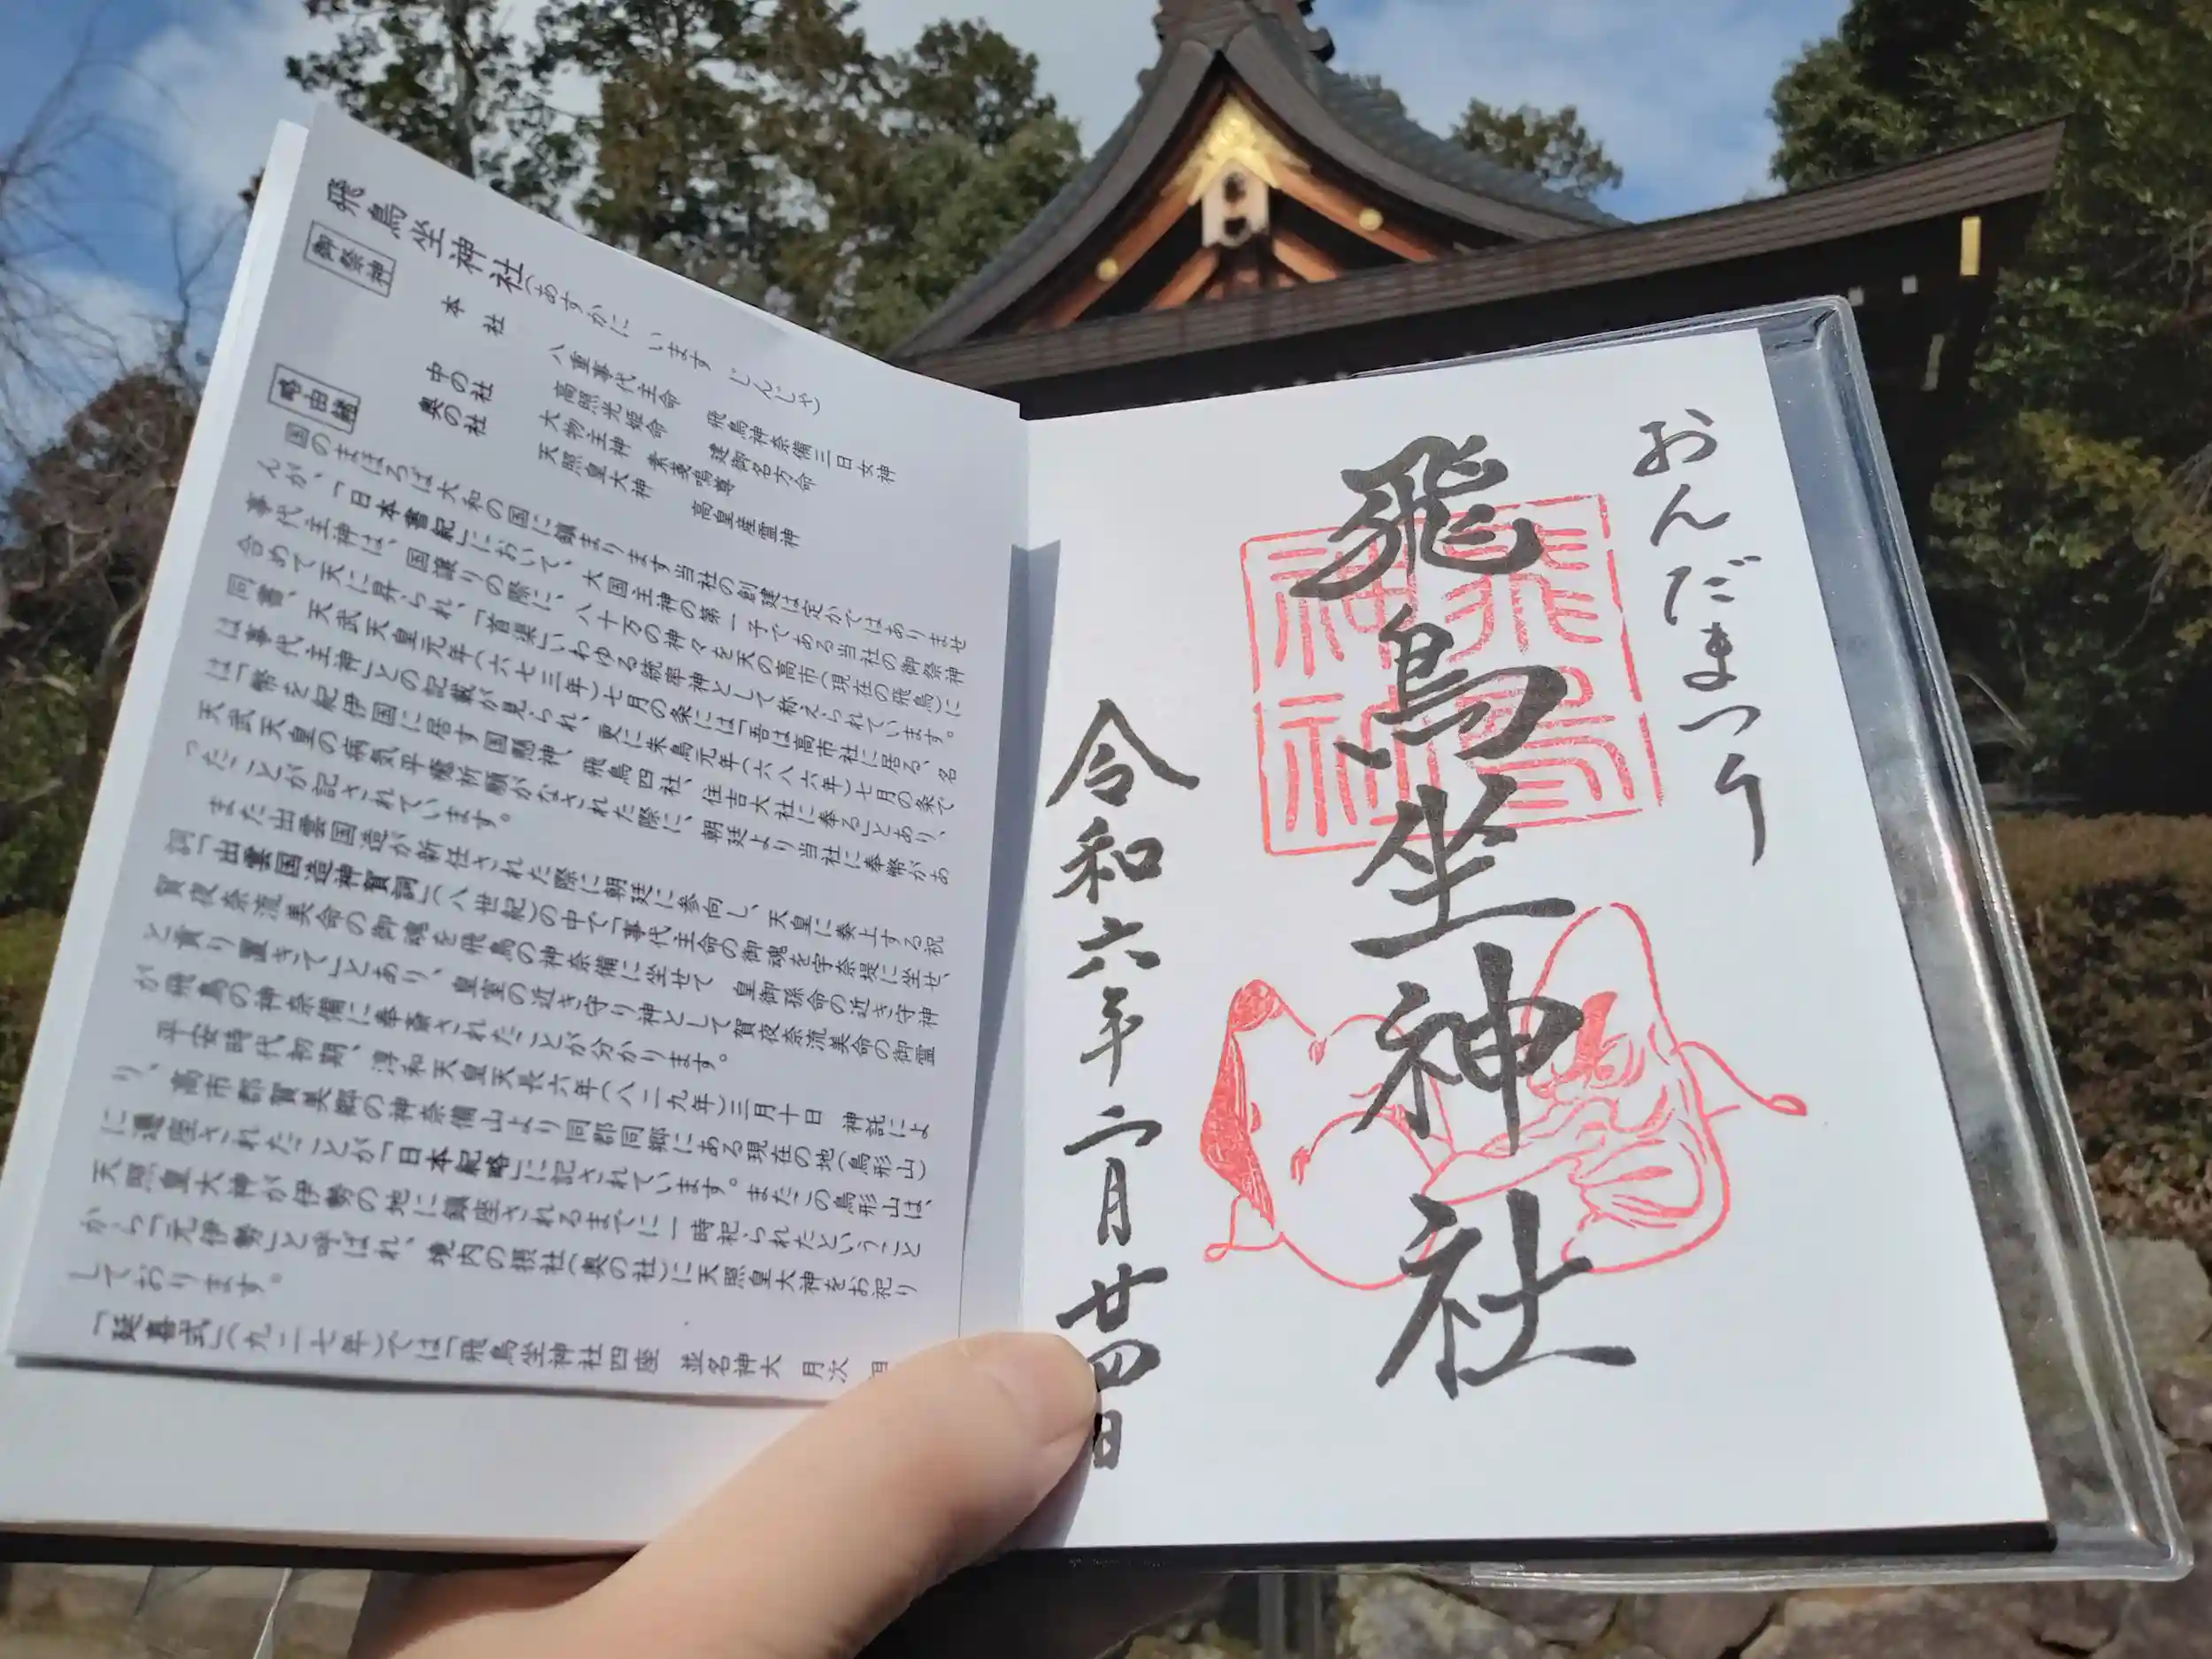 飛鳥坐神社(あすかに います じんじゃ)
御祭神
本社 八重事代主命 飛鳥神奈備三日女神
高照光姫命 建御名方命
中の社 大物主神 素戔嗚尊 高皇産霊神
奥の社 天照皇大神
略由緒
国のまほろば大和の国に鎮まります当社の創建は定かではありませ
んが、「日本書紀」において、大国主神の第一子である当社の御祭神
事代主神は、国譲りの際に、八十万の神々を天の高市(現在の飛鳥)に
合めて天に昇られ、「首渠」いわゆる統率神として称えられています。
同書、天武天皇元年(六七三年)七月の条には「吾は高市社に居る、名
は事代主神」との記載が見られ、更に朱鳥元年(六八六年)七月の条で
は「幣を紀伊国に居す国懸神、飛鳥四社、住吉大社に奉る」とあり、
天武天皇の病気平癒祈願がなされた際に、朝廷より当社に奉幣があ
ったことが記されています。
また出雲国造が新任された際に朝廷に参向し、天皇に奏上する祝
詞「出雲国造神賀詞」(八世紀)の中で「事代主命の御魂を宇奈堤に坐せ、
賀夜奈流美命の御魂を飛鳥の神奈備に坐せて 皇御孫命の近き守神
と貢り置きて」とあり、皇室の近き守り神として賀夜奈流美命の御霊
が飛鳥の神奈備に奉斎されたことが分かります。
平安時代初期、淳和天皇天長六年(八二九年)三月十日 神託によ
り、高市郡賀美郷の神奈備山より同郡同郷にある現在の地(鳥形山)
に遷座されたことが「日本紀略」に記されています。またこの鳥形山は、
天照皇大神が伊勢の地に鎮座されるまでに一時祀られたということ
から「元伊勢」と呼ばれ、境内の摂社(奥の社)に天照皇大神をお祀り
しております。
「延喜式」(九二七年)では「飛鳥坐神社四座 並名神大 月次
おんだまつり
飛鳥坐神社
飛鳥神社
令和六年二月廿四日